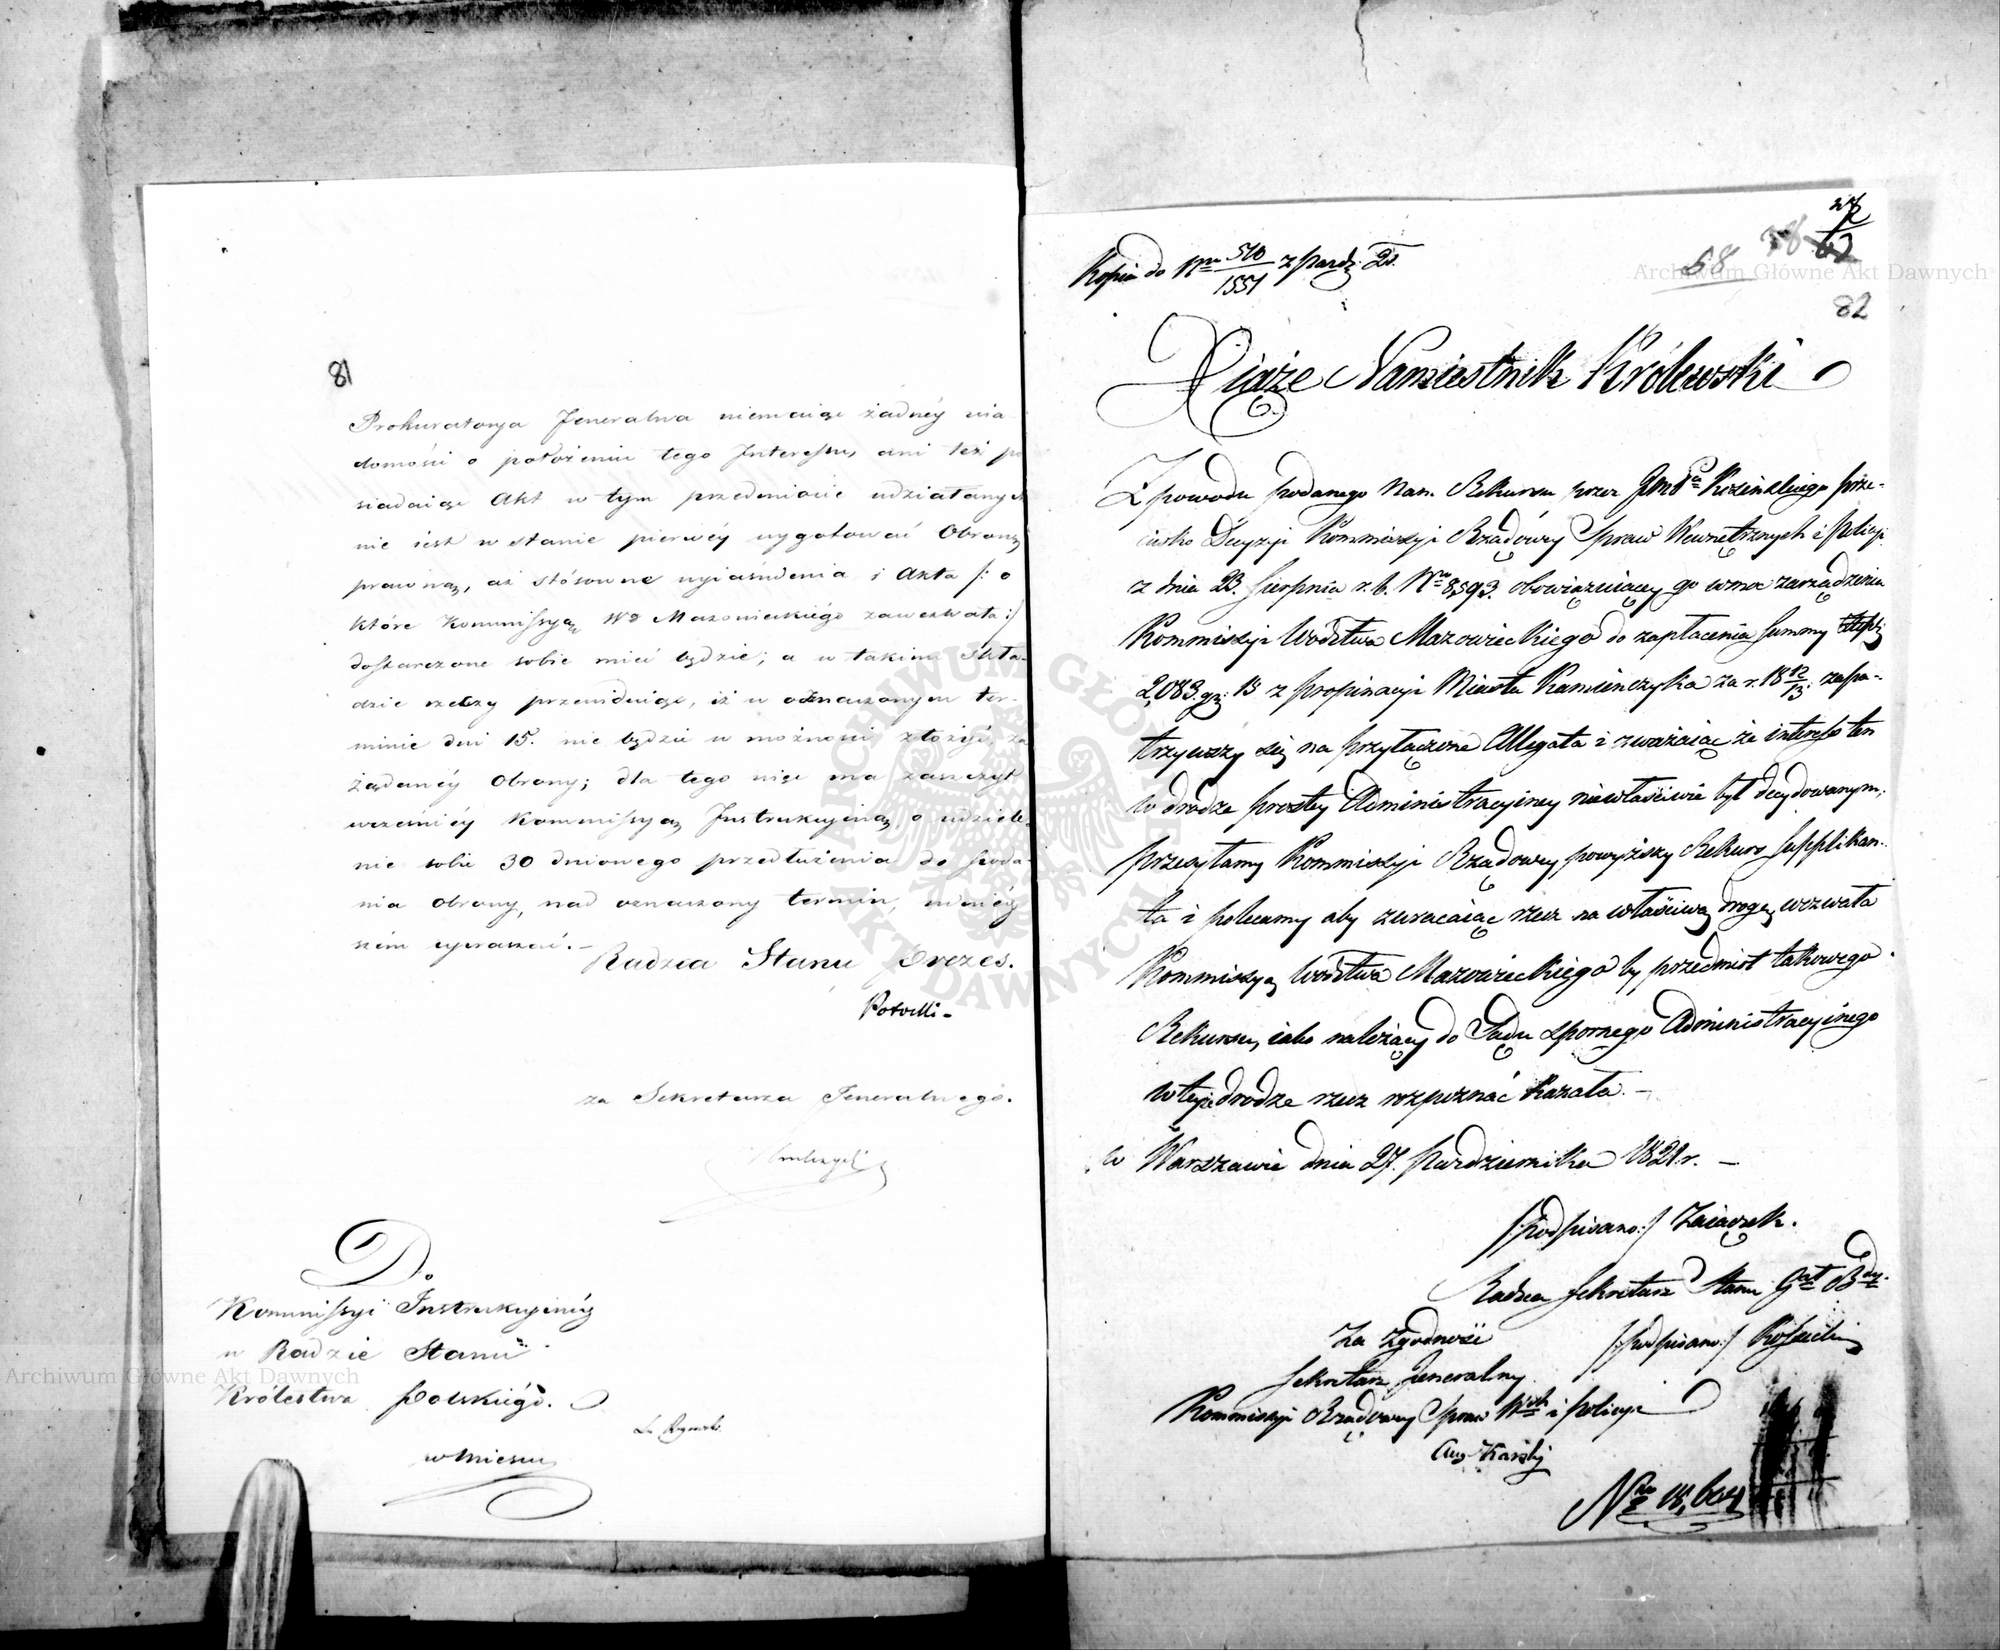 81
Prokuratorya Jeneralna niemaiąc żadnéy wia-
domości o położeniu tego Interessu, ani też po
siadaiąc Akt w tym przedmiocie udziałanych
nie iest w stanie pierwéy wygotować Obronę
prawną, aż stósowne wyiaśnienia i Akta /: o
które Kommissyą Wa Mazowieckiégo zawezwała :/
dostarczone sobie mieć będzie; a w takim skła-
dzie rzeczy przewiduiąc, iż w oznaczonym ter-
minie dni 15. nie będzie w możności złożyć za
żądanéy Obrony; dla tego więc ma zaszczyt
wcześniéy Kommissyą Instrukcyiną, o udziele-
nie sobie 30 dniowego przedłużenia do poda-
nia obrony, nad oznaczony termin,
upraszać. —
Radzca Stanu Prezes.
za Sekretarza Jeneralnego.
Do
Kommissyi Instrukcyinéy
w Radzie Stanu
Królestwa Polskiégo.
w Mieyscu
Kopia do Nru 510/1551 z Pazdz: 21.
68
82
Xiąże Namiestnik Królewski
Z powodu podanego Nam Rekursu przez prze-
ciwko Decyzyi Kommissyi Rządowey Spraw Wewnętrznych i Policyi
z dnia 23. Sierpnia r. b. Nro 8,593. obowiązuiącey go w moc zarządzenia
Kommissyi Wodztwa Mazowieckiego do zapłacenia Summy
2,083. gr: 15 z propinacyi Miasta Kamienczyka za r. 1812/13. zapa-
trzywszy się na przyłączone Allegata i zważaiąc że interess ten
w drodze prostey Administracyiney niewłaściwie był decydowanym;
przesyłamy Kommissyi Rządowey powyższy Rekurs Supplikan-
ta i polecamy aby zwracaiąc rzecz na właściwą drogę, wezwała
Kommissyą Wodztwa Mazowieckiego by przedmiot takowego
Rekursu, iako należący do Sądu spornego Administracyinego
w teyże drodze rzecz rozpoznać kazała. —
w Warszawie dnia 27. Pazdziernika 1821 r. —
/podpisano:/ Zaiączek.
Radca Sekretarz Stanu Gał Bdy.
/:podpisano:/ Kossecki
Za Zgodność
Sekretarz Jeneralny
Kommissyi Rządowey Spraw Wch i Policyi
Aug Karski
Archiwum Główne Akt Dawnych
Archiwum Główne Akt Dawnych
ARCHIWUM GŁÓWNE AKT DAWNYCH